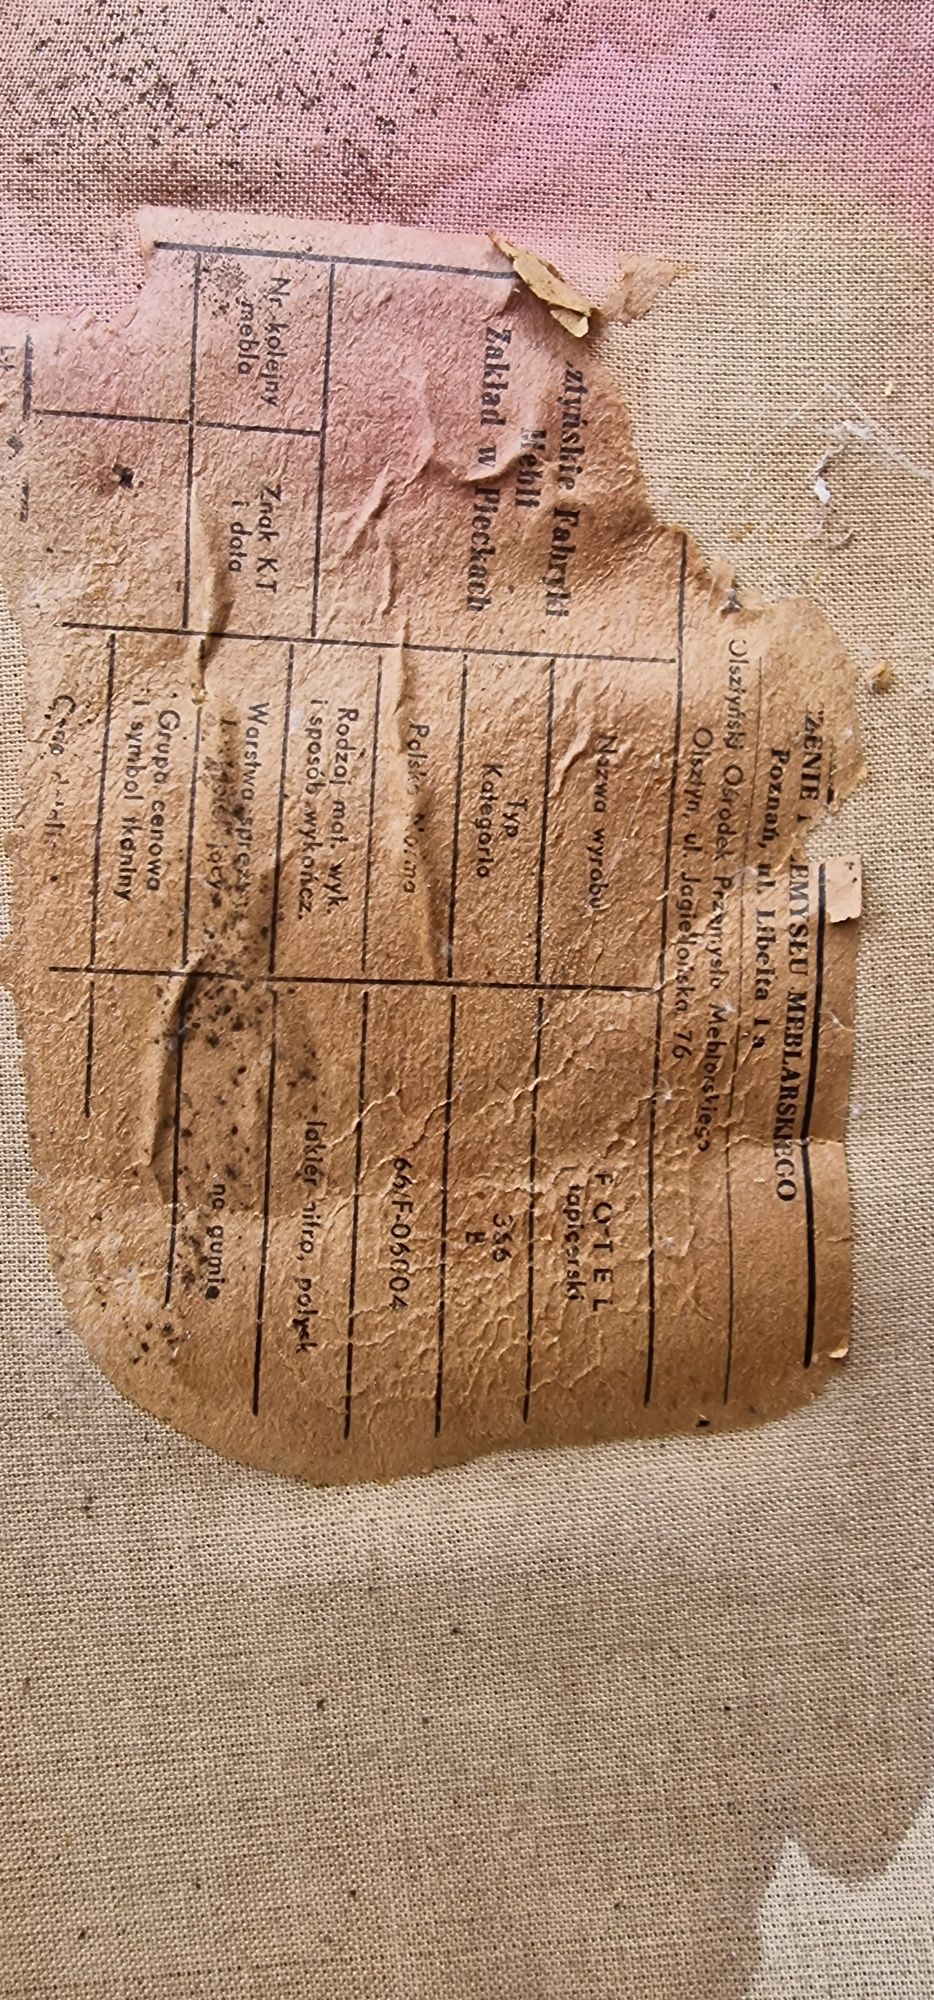 ZENIE EMYSŁU MEBLARSKIEGO
Poznań, ul. Libelta 1a
Olsztyński Ośrodek Przemysłu Meblarskiego
Olsztyn, ul. Jagiellońska 76
sztyńskie Fabryki
Mebli
Zakład w Pieckach
Nr. kolejny
mebla
Znak KT
i data
Nazwa wyrobu
FOTEL
tapicerski
Typ
Kategoria
366
Polska Norma
66/F-06004
Rodzaj mat. wyk.
i sposób wykończ.
lakier nitro, połysk
Warstwa spręż
na gumie
Grupa cenowa
i symbol tkaniny
Cena